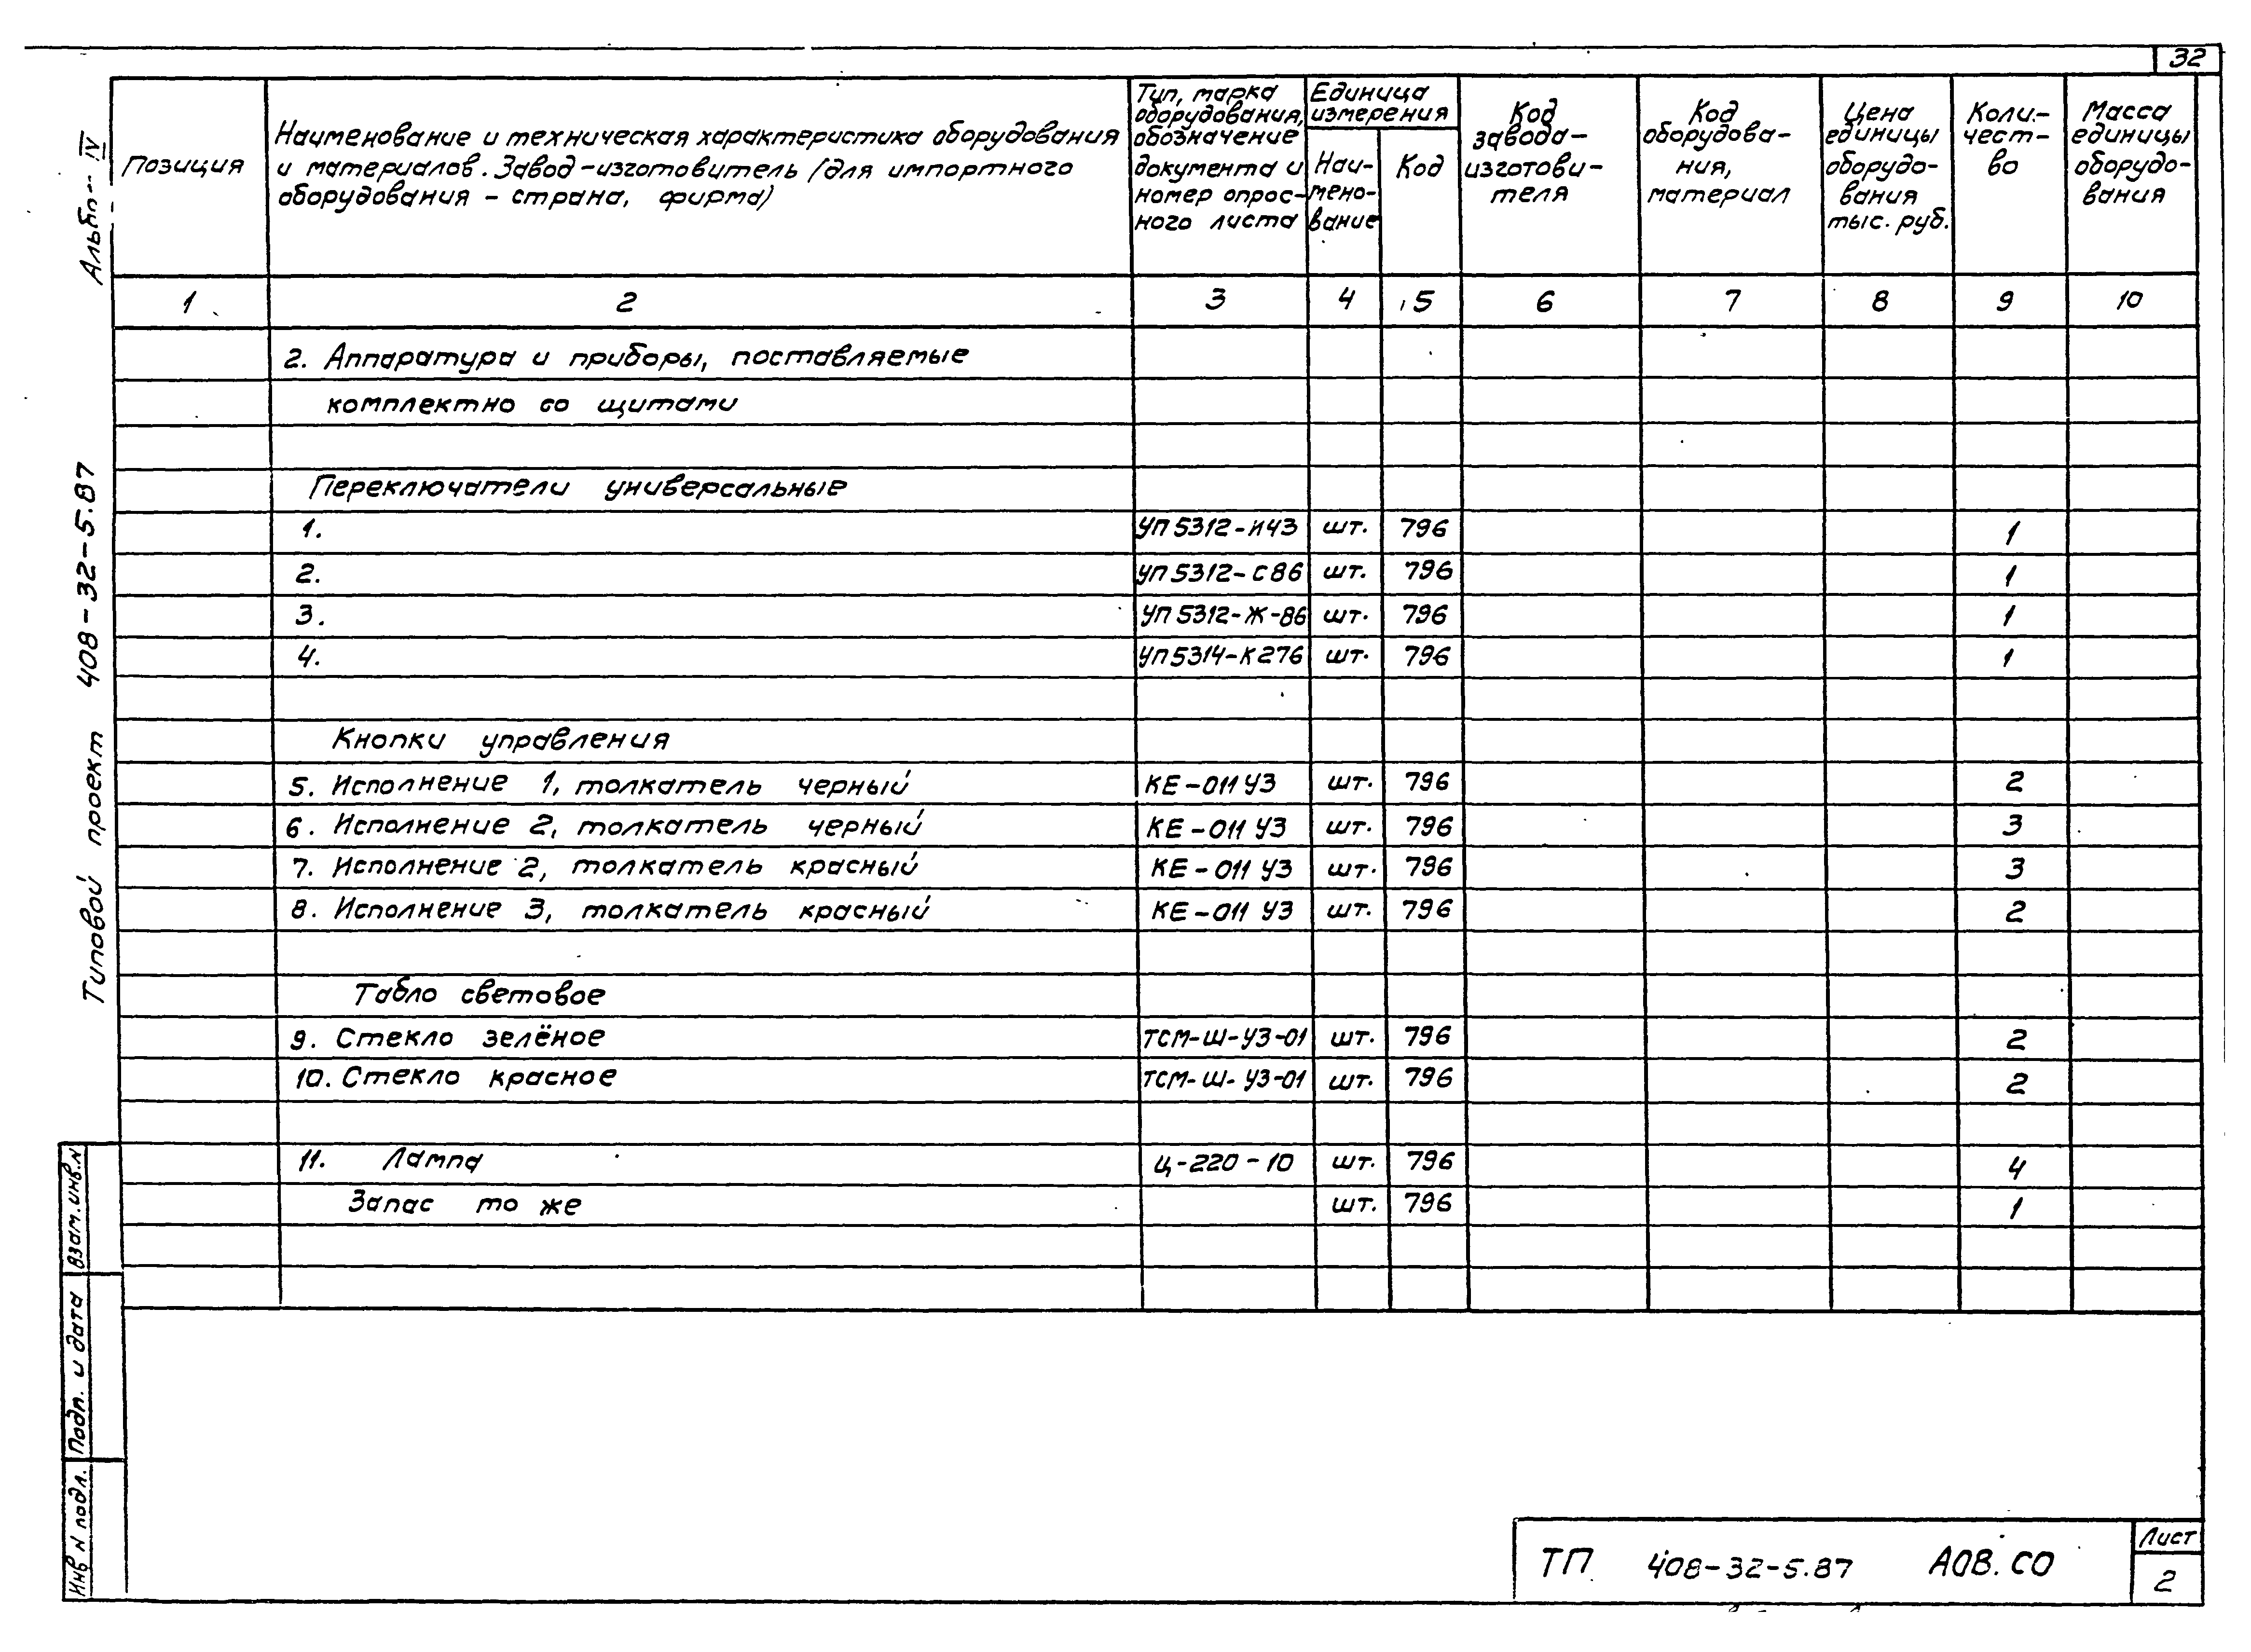 32
Альбом IV
Типовой проект 408-32-5.87
Позиция
Наименование и техническая характеристика оборудования
и материалов. Завод-изготовитель (для импортного
оборудования - страна, фирма)
Тип, марка
оборудования,
обозначение
документа и
номер опрос-
ного листа
Единица
измерения
Наи-
мено-
вание
Код
Код
завода-
изготови-
теля
Код
оборудова-
ния,
материал
Цена
единицы
оборудо-
вания
тыс. руб.
Коли-
чест-
во
Масса
единицы
оборудо-
вания
1 2 3 4 5 6 7 8 9 10
2. Аппаратура и приборы, поставляемые
комплектно со щитами
Переключатели универсальные
1. УП5312-И43 шт. 796 1
2. УП5312-С86 шт. 796 1
3. УП5312-Ж-86 шт. 796 1
4. УП5314-К276 шт. 796 1
Кнопки управления
5. Исполнение 1, толкатель черный КЕ-011 У3 шт. 796 2
6. Исполнение 2, толкатель черный КЕ-011 У3 шт. 796 3
7. Исполнение 2, толкатель красный КЕ-011 У3 шт. 796 3
8. Исполнение 3, толкатель красный КЕ-011 У3 шт. 796 2
Табло световое
9. Стекло зелёное ТСМ-Ш-У3-01 шт. 796 2
10. Стекло красное ТСМ-Ш-У3-01 шт. 796 2
11. Лампа Ц-220-10 шт. 796 4
Запас то же шт. 796 1
Взам.инв.N
Подп. и дата
Инв N подл.
ТП 408-32-5.87 АОВ.СО
Лист
2